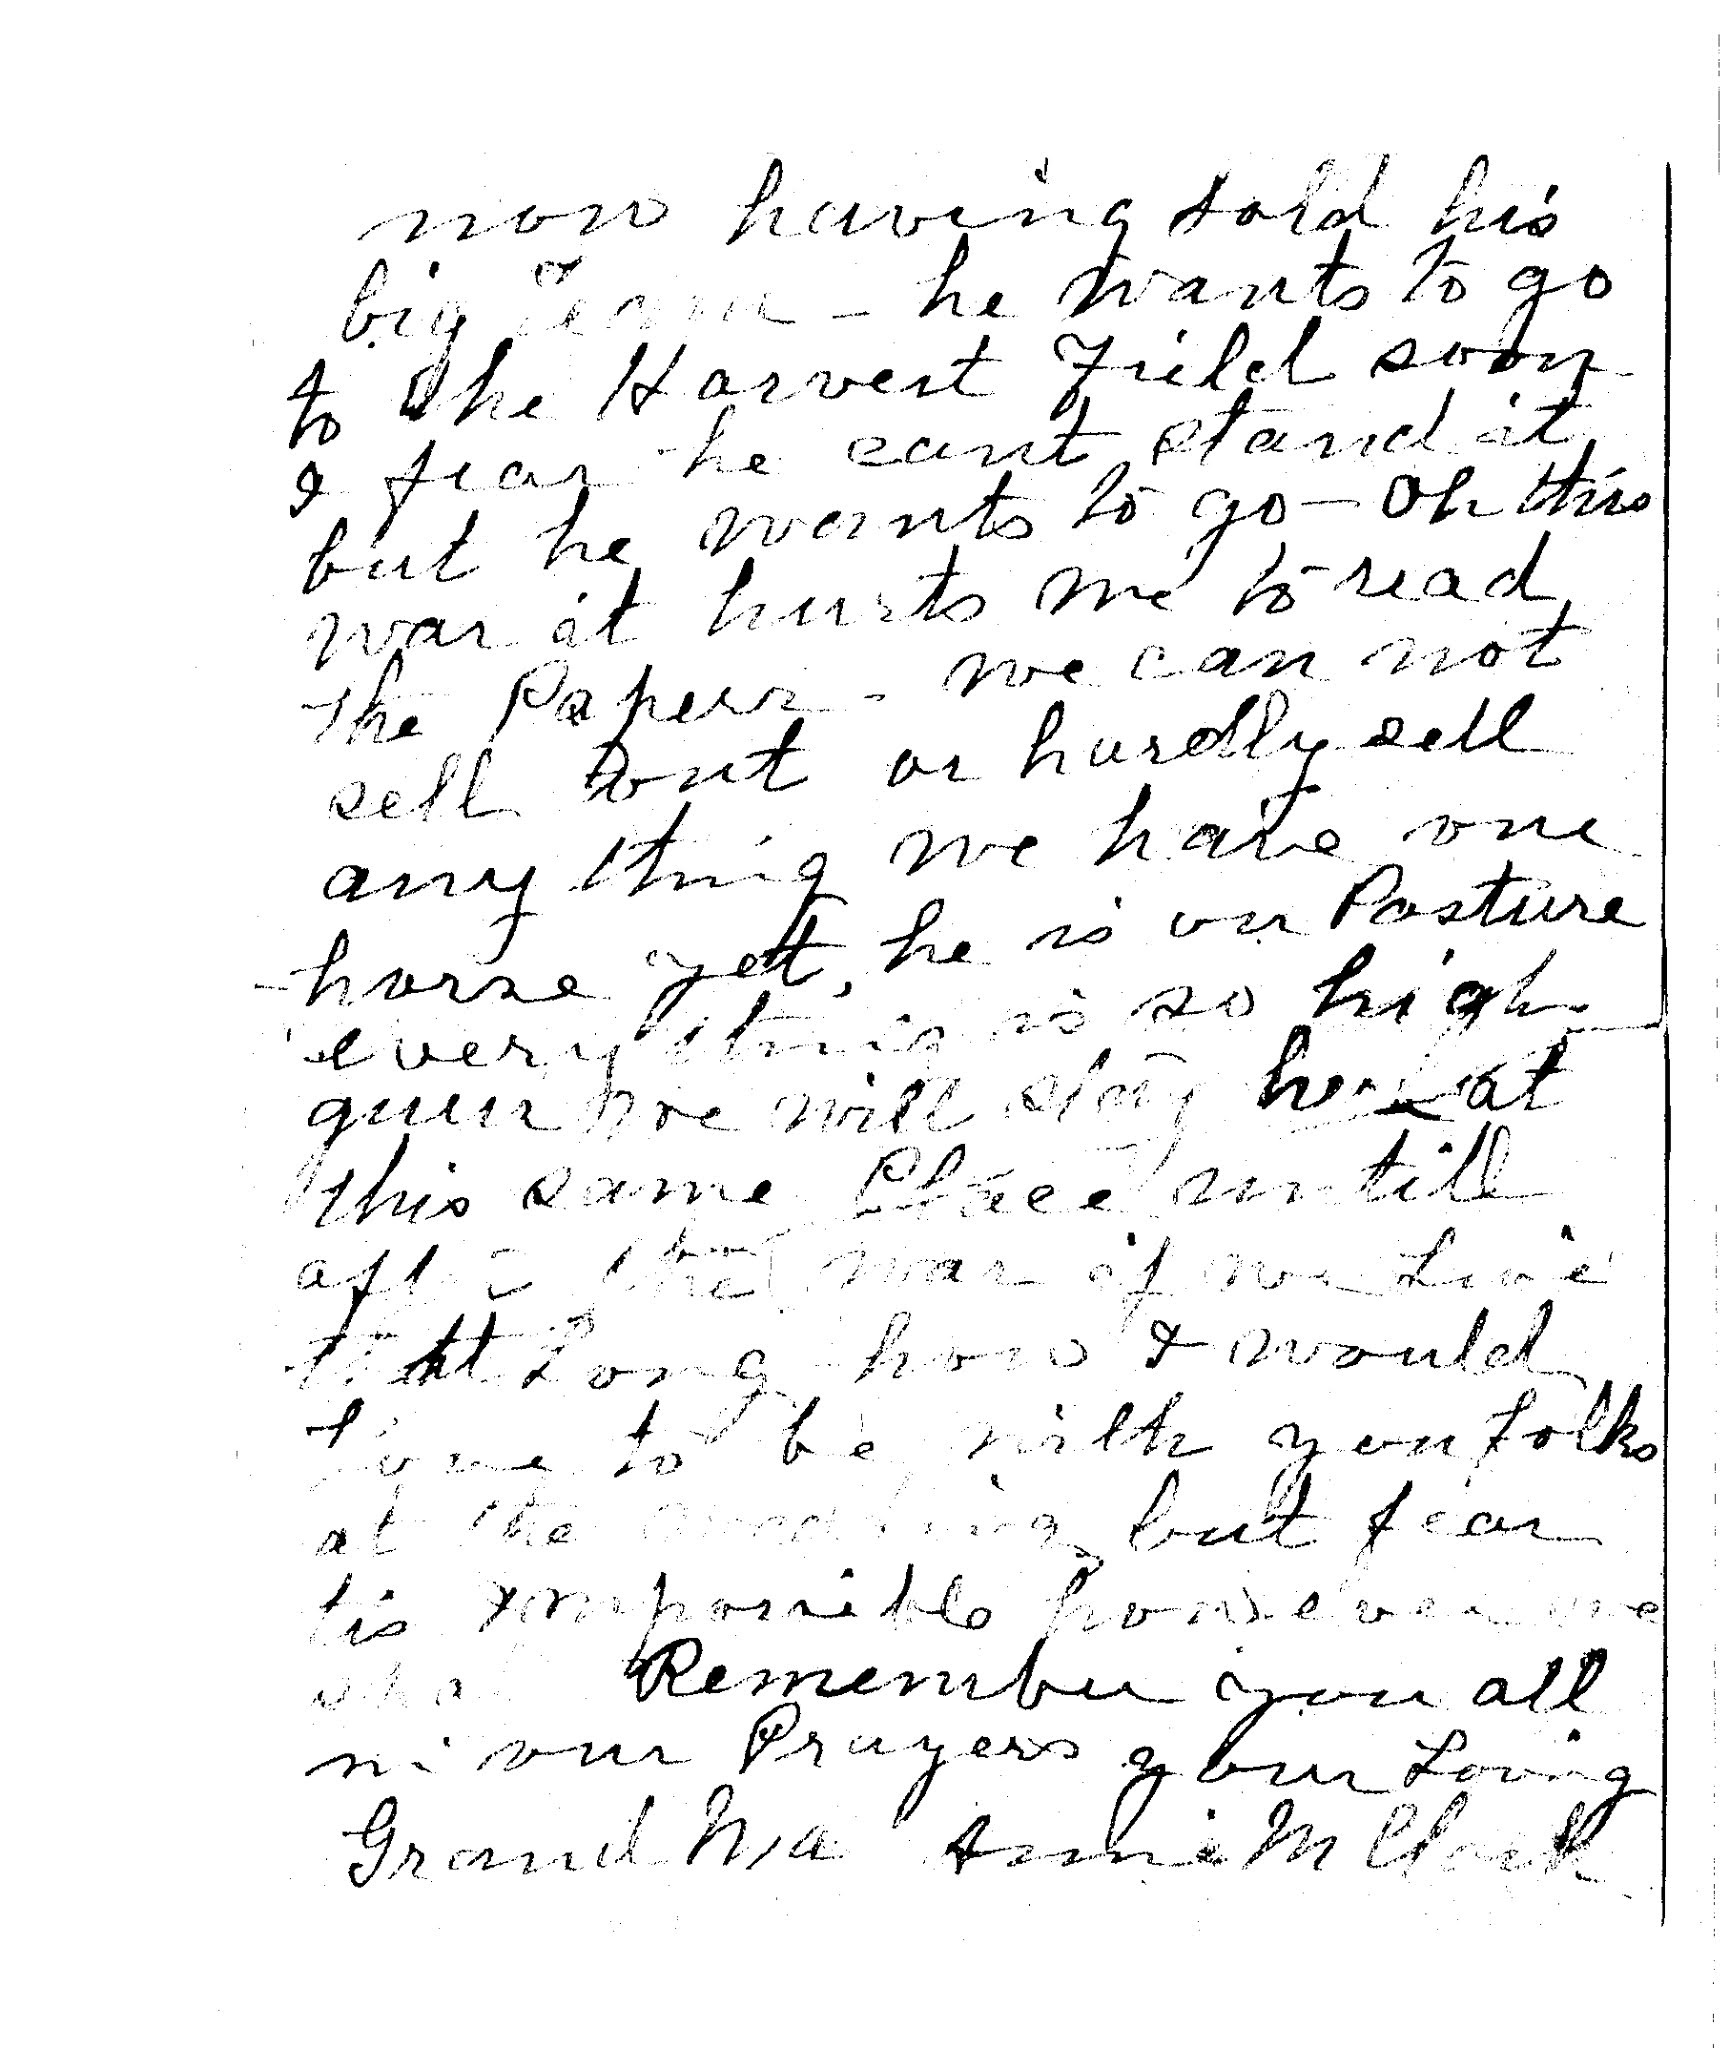 now having sold his
big Team - he wants to go
to the Harvest Field soon
I fear he cant stand it,
but he wants to go - Oh this
war it hurts me to read
the Papers - we can not
sell out or hardly sell
any thing we have one
horse yet, he is on Pasture
every thing is so high
guess we will stay here at
this same Place untill
after the war if we Live
that Long how I would
Love to be with you folks
at the but fear
tis impossible however we
shal Remember you all
in our Prayers your Loving
Grand Ma Annie M Clark